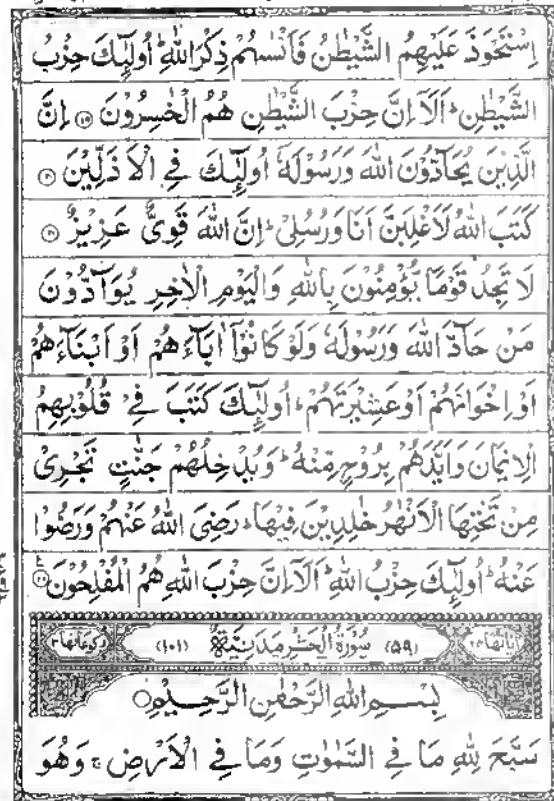 اِسْتَحْوَذَ عَلَيْهِمُ الشَّيْطٰنُ فَاَنْسٰىهُمْ ذِكْرَ اللّٰهِ ؕ اُولٰٓئِكَ حِزْبُ
الشَّيْطٰنِ ؕ اَلَاۤ اِنَّ حِزْبَ الشَّيْطٰنِ هُمُ الْخٰسِرُوْنَ ۝۱۹ اِنَّ
الَّذِيْنَ يُحَآدُّوْنَ اللّٰهَ وَرَسُوْلَهٗۤ اُولٰٓئِكَ فِي الْاَذَلِّيْنَ ۝۲۰
كَتَبَ اللّٰهُ لَاَغْلِبَنَّ اَنَا وَرُسُلِيْ ؕ اِنَّ اللّٰهَ قَوِيٌّ عَزِيْزٌ ۝۲۱
لَا تَجِدُ قَوْمًا يُّؤْمِنُوْنَ بِاللّٰهِ وَالْيَوْمِ الْاٰخِرِ يُوَآدُّوْنَ
مَنْ حَآدَّ اللّٰهَ وَرَسُوْلَهٗ وَلَوْ كَانُوْۤا اٰبَآءَهُمْ اَوْ اَبْنَآءَهُمْ
اَوْ اِخْوَانَهُمْ اَوْ عَشِيْرَتَهُمْ ؕ اُولٰٓئِكَ كَتَبَ فِيْ قُلُوْبِهِمُ
الْاِيْمَانَ وَاَيَّدَهُمْ بِرُوْحٍ مِّنْهُ ؕ وَيُدْخِلُهُمْ جَنّٰتٍ تَجْرِيْ
مِنْ تَحْتِهَا الْاَنْهٰرُ خٰلِدِيْنَ فِيْهَا ؕ رَضِيَ اللّٰهُ عَنْهُمْ وَرَضُوْا
عَنْهُ ؕ اُولٰٓئِكَ حِزْبُ اللّٰهِ ؕ اَلَاۤ اِنَّ حِزْبَ اللّٰهِ هُمُ الْمُفْلِحُوْنَ ۝۲۲
اٰيَاتُهَا ۲۴ (۵۹) سُوْرَةُ الْحَشْرِ مَدَنِيَّةٌ (۱۰۱) رُكُوْعَاتُهَا ۳
بِسْمِ اللّٰهِ الرَّحْمٰنِ الرَّحِيْمِ
سَبَّحَ لِلّٰهِ مَا فِي السَّمٰوٰتِ وَمَا فِي الْاَرْضِ ۚ وَهُوَ